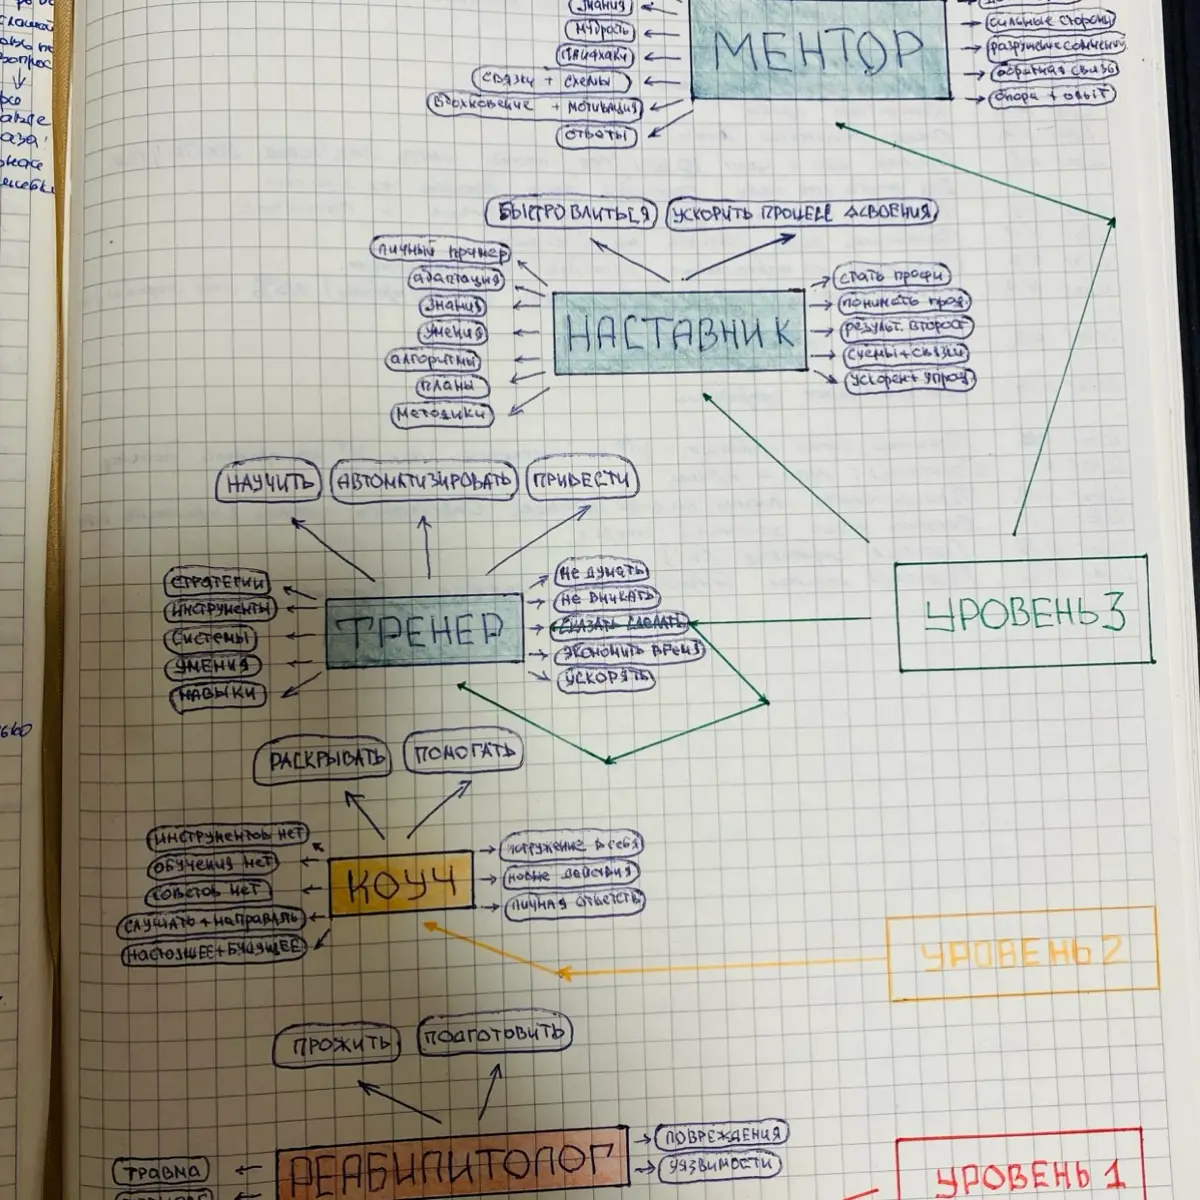 знания
мудрость
лайфхаки
связки + схемы
вдохновение + мотивация
ответы
МЕНТОР
сильные стороны
разрушение сомнений
обратная связь
опора + опыт
БЫСТРО ВЛИТЬСЯ
УСКОРИТЬ ПРОЦЕСС ОСВОЕНИЯ
личный пример
адаптация
знания
умения
алгоритмы
планы
методики
НАСТАВНИК
стать профи
понимать прод.
результ. второст
схемы + связки
ускорен + упрощ.
НАУЧИТЬ
АВТОМАТИЗИРОВАТЬ
ПРИВЕСТИ
СТРАТЕГИИ
ИНСТРУМЕНТЫ
СИСТЕМЫ
УМЕНИЯ
НАВЫКИ
ТРЕНЕР
НЕ ДУМАТЬ
НЕ ВНИКАТЬ
СКАЗАТЬ СДЕЛАТЬ
ЭКОНОМИТЬ ВРЕМЯ
УСКОРЯТЬ
УРОВЕНЬ 3
РАСКРЫВАТЬ
ПОМОГАТЬ
ИНСТРУМЕНТОВ НЕТ
ОБУЧЕНИЯ НЕТ
СОВЕТОВ НЕТ
СЛУШАТЬ + НАПРАВЛЯТЬ
НАСТОЯЩЕЕ + БУДУЩЕЕ
КОУЧ
ПОГРУЖЕНИЕ В СЕБЯ
НОВЫЕ ДЕЙСТВИЯ
ЛИЧНАЯ ОТВЕТСТВ
УРОВЕНЬ 2
ПРОЖИТЬ
ПОДГОТОВИТЬ
ТРАВМА
РЕАБИЛИТОЛОГ
ПОВРЕЖДЕНИЯ
УЯЗВИМОСТИ
УРОВЕНЬ 1